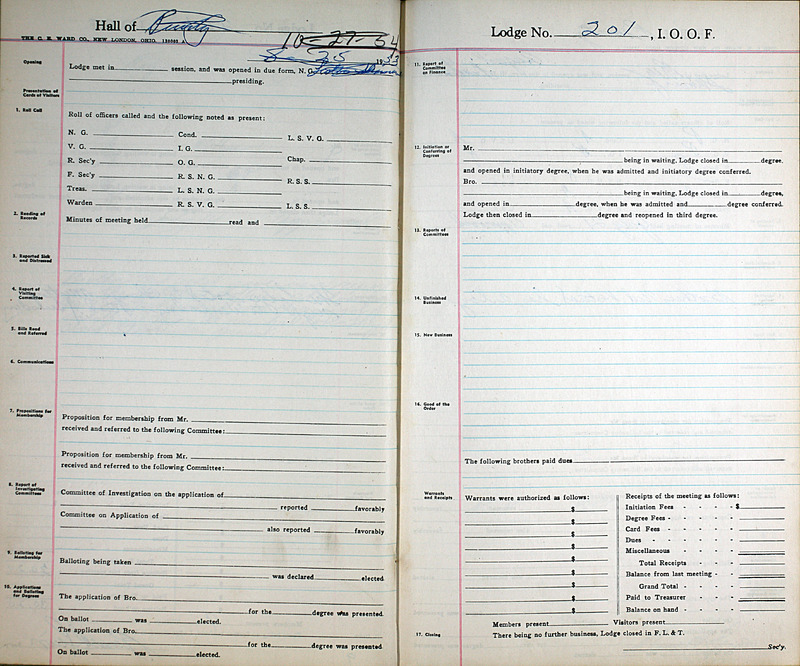 Hall of Purity
THE C. E. WARD CO., NEW LONDON, OHIO.
10-27-54
8-25 1953
Opening
Lodge met in ______ session, and was opened in due form, N. G.
______ presiding.
Presentation of
Cards of Visitors
1. Roll Call
Roll of officers called and the following noted as present:
N. G. ______ Cond. ______ L. S. V. G. ______
V. G. ______ I. G. ______
R. Sec'y ______ O. G. ______ Chap. ______
F. Sec'y ______ R. S. N. G. ______ R. S. S. ______
Treas. ______ L. S. N. G. ______
Warden ______ R. S. V. G. ______ L. S. S. ______
2. Reading of
Records
Minutes of meeting held ______ read and ______
3. Reported Sick
and Distressed
4. Report of
Visiting
Committee
5. Bills Read
and Referred
6. Communications
7. Propositions for
Membership
Proposition for membership from Mr. ______
received and referred to the following Committee: ______
Proposition for membership from Mr. ______
received and referred to the following Committee: ______
8. Report of
Investigating
Committees
Committee of Investigation on the application of ______
______ reported ______ favorably
Committee on Application of ______
______ also reported ______ favorably
9. Balloting for
Membership
Balloting being taken ______
______ was declared ______ elected
10. Applications
and Balloting
for Degrees
The application of Bro. ______
______ for the ______ degree was presented.
On ballot ______ was ______ elected.
The application of Bro. ______
______ for the ______ degree was presented
On ballot ______ was ______ elected.
Lodge No. 201, I. O. O. F.
11. Report of
Committee
on Finance
12. Initiation or
Conferring of
Degrees
Mr. ______
______ being in waiting, Lodge closed in ______ degree.
and opened in initiatory degree, when he was admitted and initiatory degree conferred.
Bro. ______
______ being in waiting, Lodge closed in ______ degree,
and opened in ______ degree, when he was admitted and ______ degree conferred.
Lodge then closed in ______ degree and reopened in third degree.
13. Reports of
Committees
14. Unfinished
Business
15. New Business
16. Good of the
Order
The following brothers paid dues ______
Warrants
and Receipts
Warrants were authorized as follows:
$
$
$
$
$
$
$
$
$
Receipts of the meeting as follows:
Initiation Fees - - - - $
Degree Fees - - - -
Card Fees - - - -
Dues - - - -
Miscellaneous - - -
Total Receipts - - -
Balance from last meeting - -
Grand Total - - -
Paid to Treasurer - - -
Balance on hand - - -
Members present ______ Visitors present ______
17. Closing
There being no further business, Lodge closed in F. L. & T.
______ Sec'y.